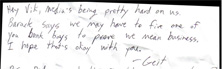 Hey Vik, Media's being pretty hard on us.
Barack says we may have to fire one of
you bank boys to prove we mean business.
I hope that's okay with you.
—Geit